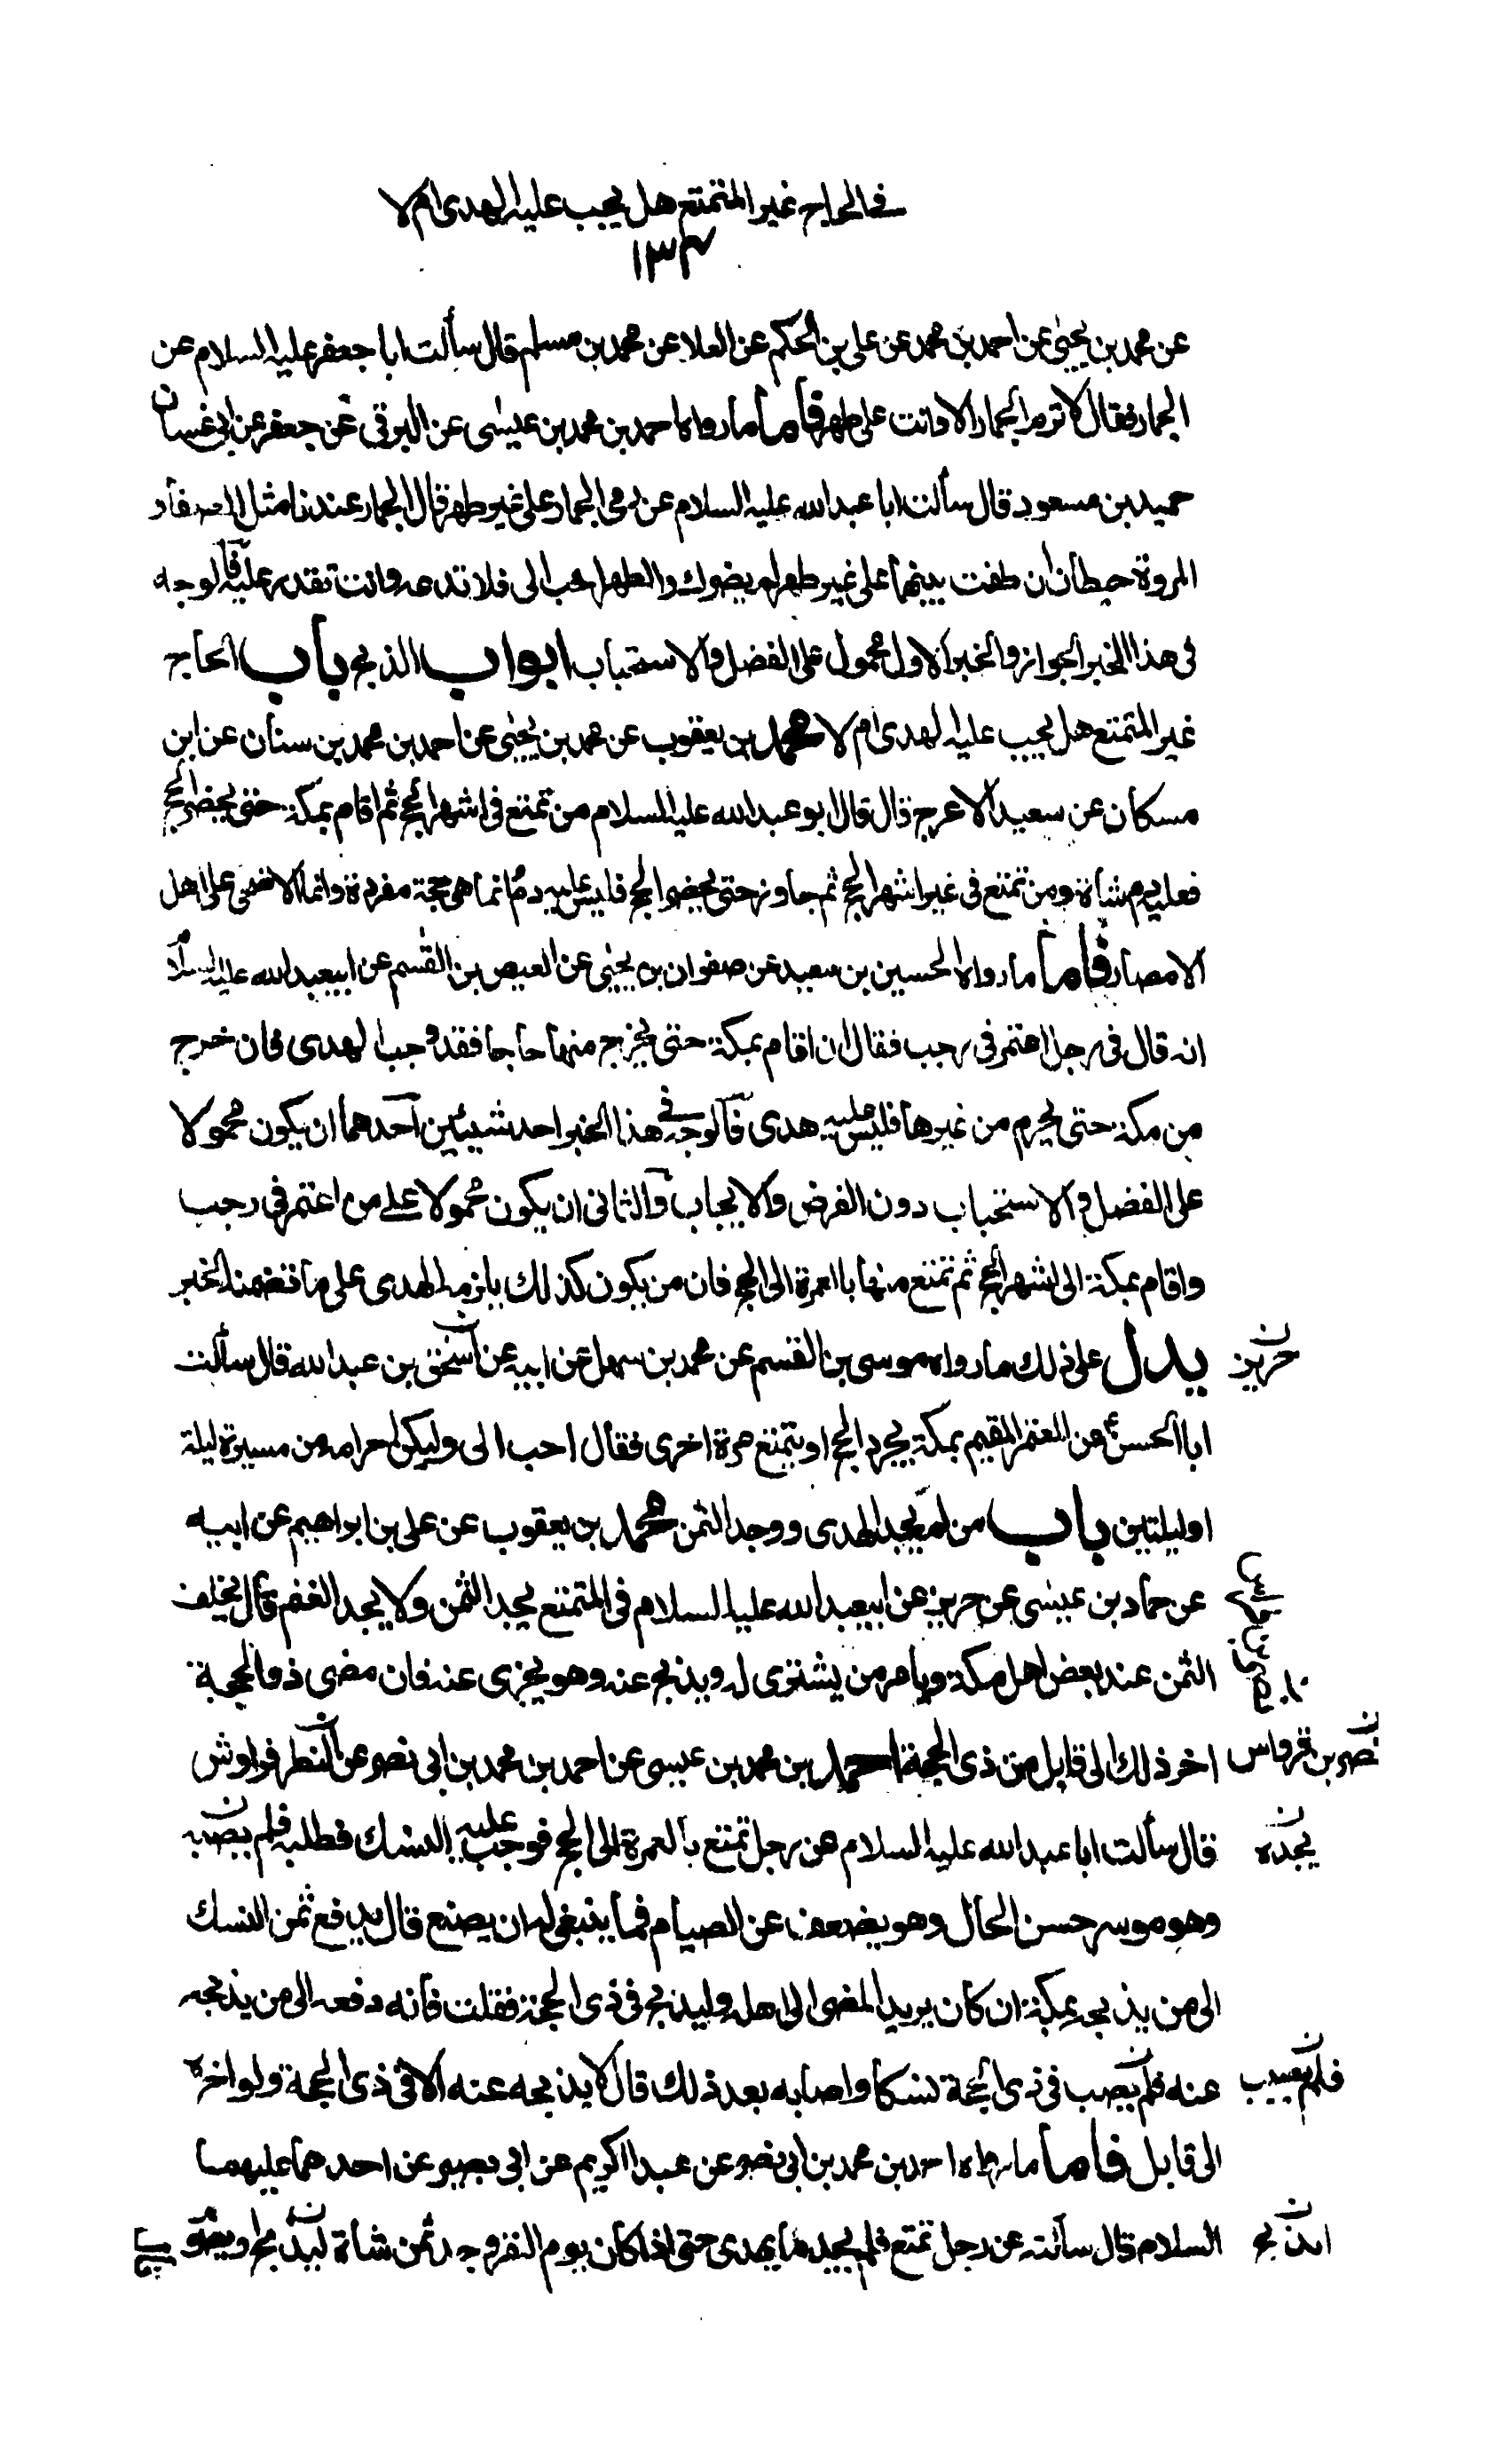 في الحاج غير المتمتع هل يجب عليه الهدى ام لا
١٣٤
عن محمد بن يحيى عن احمد بن محمد عن على بن الحكم عن العلا عن محمد بن مسلم قال سألت ابا جعفر عليه السلام عن
الجمار فقال لا ترم الجمار الا وانت على طهر فاما ما رواه احمد بن محمد بن عيسى عن البرقى عن جعفر عن ابى غسان
حميد بن مسعود قال سألت ابا عبد الله عليه السلام عن رمى الجمار على غير طهر قال الجمار عندنا مثل الصفا و
المروة حيطان ان طفت بينهما على غير طهر لم يضرك والطهر احب الى فلا تدعه وانت تقدر عليه فالوجه
فى هذا الخبر الجواز والخبر الاول محمول على الفضل والاستحباب ابواب الذبح باب الحاج
غير المتمتع هل يجب عليه الهدى ام لا محمد بن يعقوب عن محمد بن يحيى عن احمد بن محمد بن سنان عن ابن
مسكان عن سعيد الاعرج قال قال ابو عبد الله عليه السلام من تمتع فى اشهر الحج ثم اقام بمكة حتى يحضر الحج
فعليه دم شاة ومن تمتع فى غير اشهر الحج ثم جاور حتى يحضر الحج فليس عليه دم انما هى حجة مفردة وانما الاضحى على اهل
الامصار فاما ما رواه الحسين بن سعيد عن صفوان بن يحيى عن العيص بن القسم عن ابيعبد الله عليه السلام
انه قال فى رجل اعتمر فى رجب فقال ان اقام بمكة حتى يخرج منها حاجا فقد وجب الهدى فان خرج
من مكة حتى يحرم من غيرها فليس عليه هدى فالوجه في هذا الخبر احد شيئين احدهما ان يكون محمولا
على الفضل والاستحباب دون الفرض والايجاب والثانى ان يكون محمولا على من اعتمر فى رجب
واقام بمكة الى اشهر الحج ثم تمتع منها بالعمرة الى الحج فان من يكون كذلك يلزمه الهدى على ما تضمنه الخبر
يدل على ذلك ما رواه موسى بن القسم عن محمد بن سهل عن ابيه عن اسحق بن عبد الله قال سألت
حريز ن
ابا الحسن ع عن المعتمر المقيم بمكة يجرد الحج او يتمتع مرة اخرى فقال احب الى وليكن احرامه من مسيرة ليلة
او ليلتين باب من لم يجد الهدى ووجد الثمن محمد بن يعقوب عن على بن ابراهيم عن ابيه
عن حماد بن عيسى عن حريز عن ابيعبد الله عليه السلام فى المتمتع يجد الثمن ولا يجد الغنم قال يخلف
الثمن عند بعض اهل مكة ويامر من يشترى له ويذبح عنه وهو يجزى عنه فان مضى ذو الحجة
اخر ذلك الى قابل من ذى الحجة احمد بن محمد بن عيسى عن احمد بن محمد بن ابى نصر عن النضر قرواش
نصر بن قرواس ن
قال سألت ابا عبد الله عليه السلام عن رجل تمتع بالعمرة الى الحج فوجب عليه النسك فطلبه فلم يصبه
يجده ن
وهو موسر حسن الحال وهو يضعف عن الصيام فما ينبغى له ان يصنع قال يدفع ثمن النسك
الى من يذبحه بمكة ان كان يريد المضى الى اهله وليذبح فى ذى الحجة فقلت فانه دفعه الى من يذبحه
عنه فلم يصب فى ذى الحجة نسكا واصابه بعد ذلك قال لا يذبحه عنه الا فى ذى الحجة ولو اخره
فلم يصب ن
الى قابل فاما ما رواه احمد بن محمد بن ابى نصر عن عبد الكريم عن ابى بصير عن احدهما عليهما
السلام قال سألته عن رجل تمتع فلم يجد ما يهدى حتى اذا كان يوم النفر وجد ثمن شاة ليذبح او يصوم
ايذبح ن